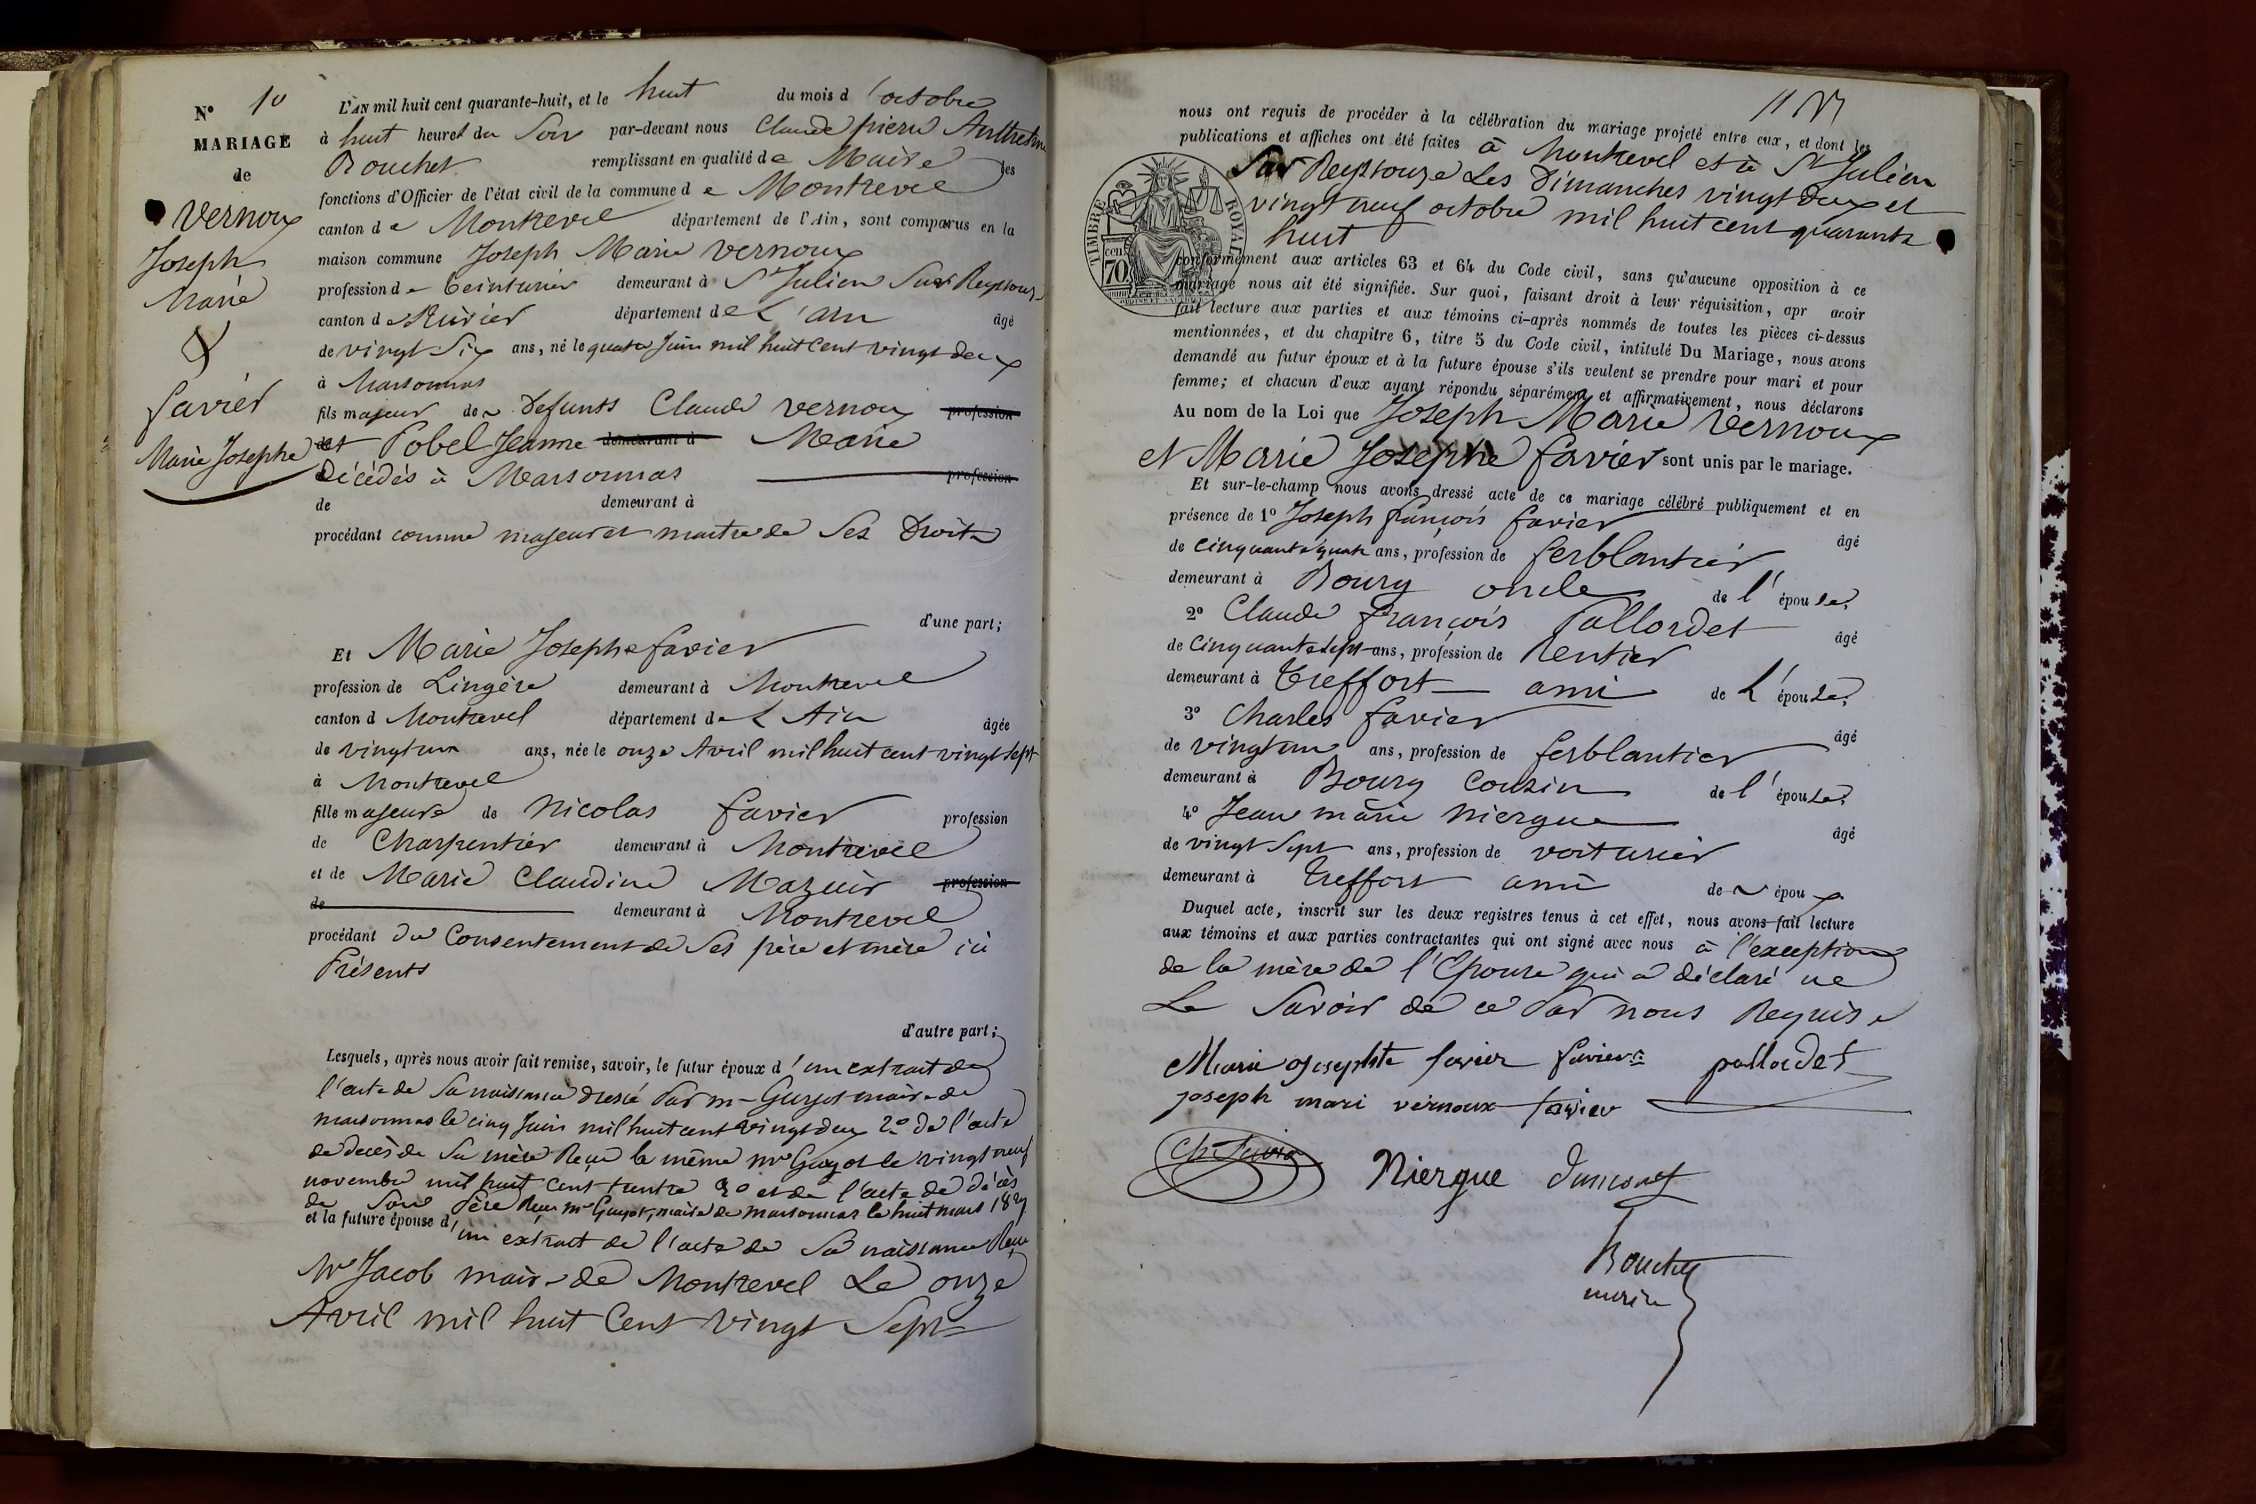 N° 10
MARIAGE
de
Vernoux
Joseph
Marie
&
favier
Marie Josephe
L'AN mil huit cent quarante-huit, et le huit du mois d'octobre
à huit heures du Soir par-devant nous Claude pierre
Bouchet remplissant en qualité de Maire les
fonctions d'Officier de l'état civil de la commune de Montrevel
canton de Montrevel département de l'Ain, sont comparus en la
maison commune Joseph Marie Vernoux
profession de teinturier demeurant à St Julien Sur Reyssouze
canton de département de L'ain âgé
de vingt Six ans, né le quatre Juin mil huit Cent vingt deux
à Marsonnas
fils majeur de Defunts Claude Vernoux profession
et Pobel Jeanne demeurant à Marie
Décédés à Marsonnas profession
de demeurant à
procédant comme majeur et maitre de Ses Droits
d'une part;
Et Marie Josephe favier
profession de Lingère demeurant à Montrevel
canton d Montrevel département de L'Ain âgée
de vingt un ans, née le onze Avril mil huit cent vingt sept
à Montrevel
fille majeure de Nicolas favier profession
de Charpentier demeurant à Montrevel
et de Marie Claudine Mazuir profession
de demeurant à Montrevel
procédant du Consentement de Ses père et mère ici
Présents
d'autre part;
Lesquels, après nous avoir fait remise, savoir, le futur époux d'un extrait de
l'acte de Sa naissance dressé Par mr Guyot maire de
marsonnas le cinq Juin mil huit cent vingt deux 2° de l'acte
de decès de Sa mère Reçu le même mr Guyot le vingt neuf
novembre mil huit cent trente 3° et de l'acte de décès
de Son Père Reçu mr Guyot, maire de marsonnas le huit mars
et la future épouse d'un extrait de l'acte de Sa naissance Reçu
Mr Jacob maire de Montrevel Le onze
Avril mil huit Cent vingt Sept
nous ont requis de procéder à la célébration du mariage projeté entre eux, et dont les
publications et affiches ont été faites à Montrevel et à St Julien
Sur Reyssouze Les Dimanches vingt deux et
vingt neuf octobre mil huit cent quarante
huit
TIMBRE ROYAL
70 cen
conformément aux articles 63 et 64 du Code civil, sans qu'aucune opposition à ce
mariage nous ait été signifiée. Sur quoi, faisant droit à leur réquisition, apr avoir
fait lecture aux parties et aux témoins ci-après nommés de toutes les pièces ci-dessus
mentionnées, et du chapitre 6, titre 5 du Code civil, intitulé Du Mariage, nous avons
demandé au futur époux et à la future épouse s'ils veulent se prendre pour mari et pour
femme; et chacun d'eux ayant répondu séparément et affirmativement, nous déclarons
Au nom de la Loi que Joseph Marie Vernoux
et Marie Josephe favier sont unis par le mariage.
Et sur-le-champ nous avons dressé acte de ce mariage célébré publiquement et en
présence de 1° Joseph françois favier âgé
de cinquante quatre ans, profession de ferblantier
demeurant à Bourg oncle de l'épouse,
2° Claude françois Pallordet âgé
de Cinquante sept ans, profession de Rentier
demeurant à Treffort ami de L'épouse,
3° Charles favier âgé
de vingt un ans, profession de ferblantier
demeurant à Bourg Cousin de l'épouse,
4° Jean marie Niergue âgé
de vingt Sept ans, profession de voiturier
demeurant à Treffort ami de époux
Duquel acte, inscrit sur les deux registres tenus à cet effet, nous avons fait lecture
aux témoins et aux parties contractantes qui ont signé avec nous à l'exception
de la mère de l'Epouse qui a déclaré ne
Le Savoir de ce Par nous Requise
Marie favier favier pallordet
joseph mari vernoux favier
Ch. favier Niergue
Bouchet
maire